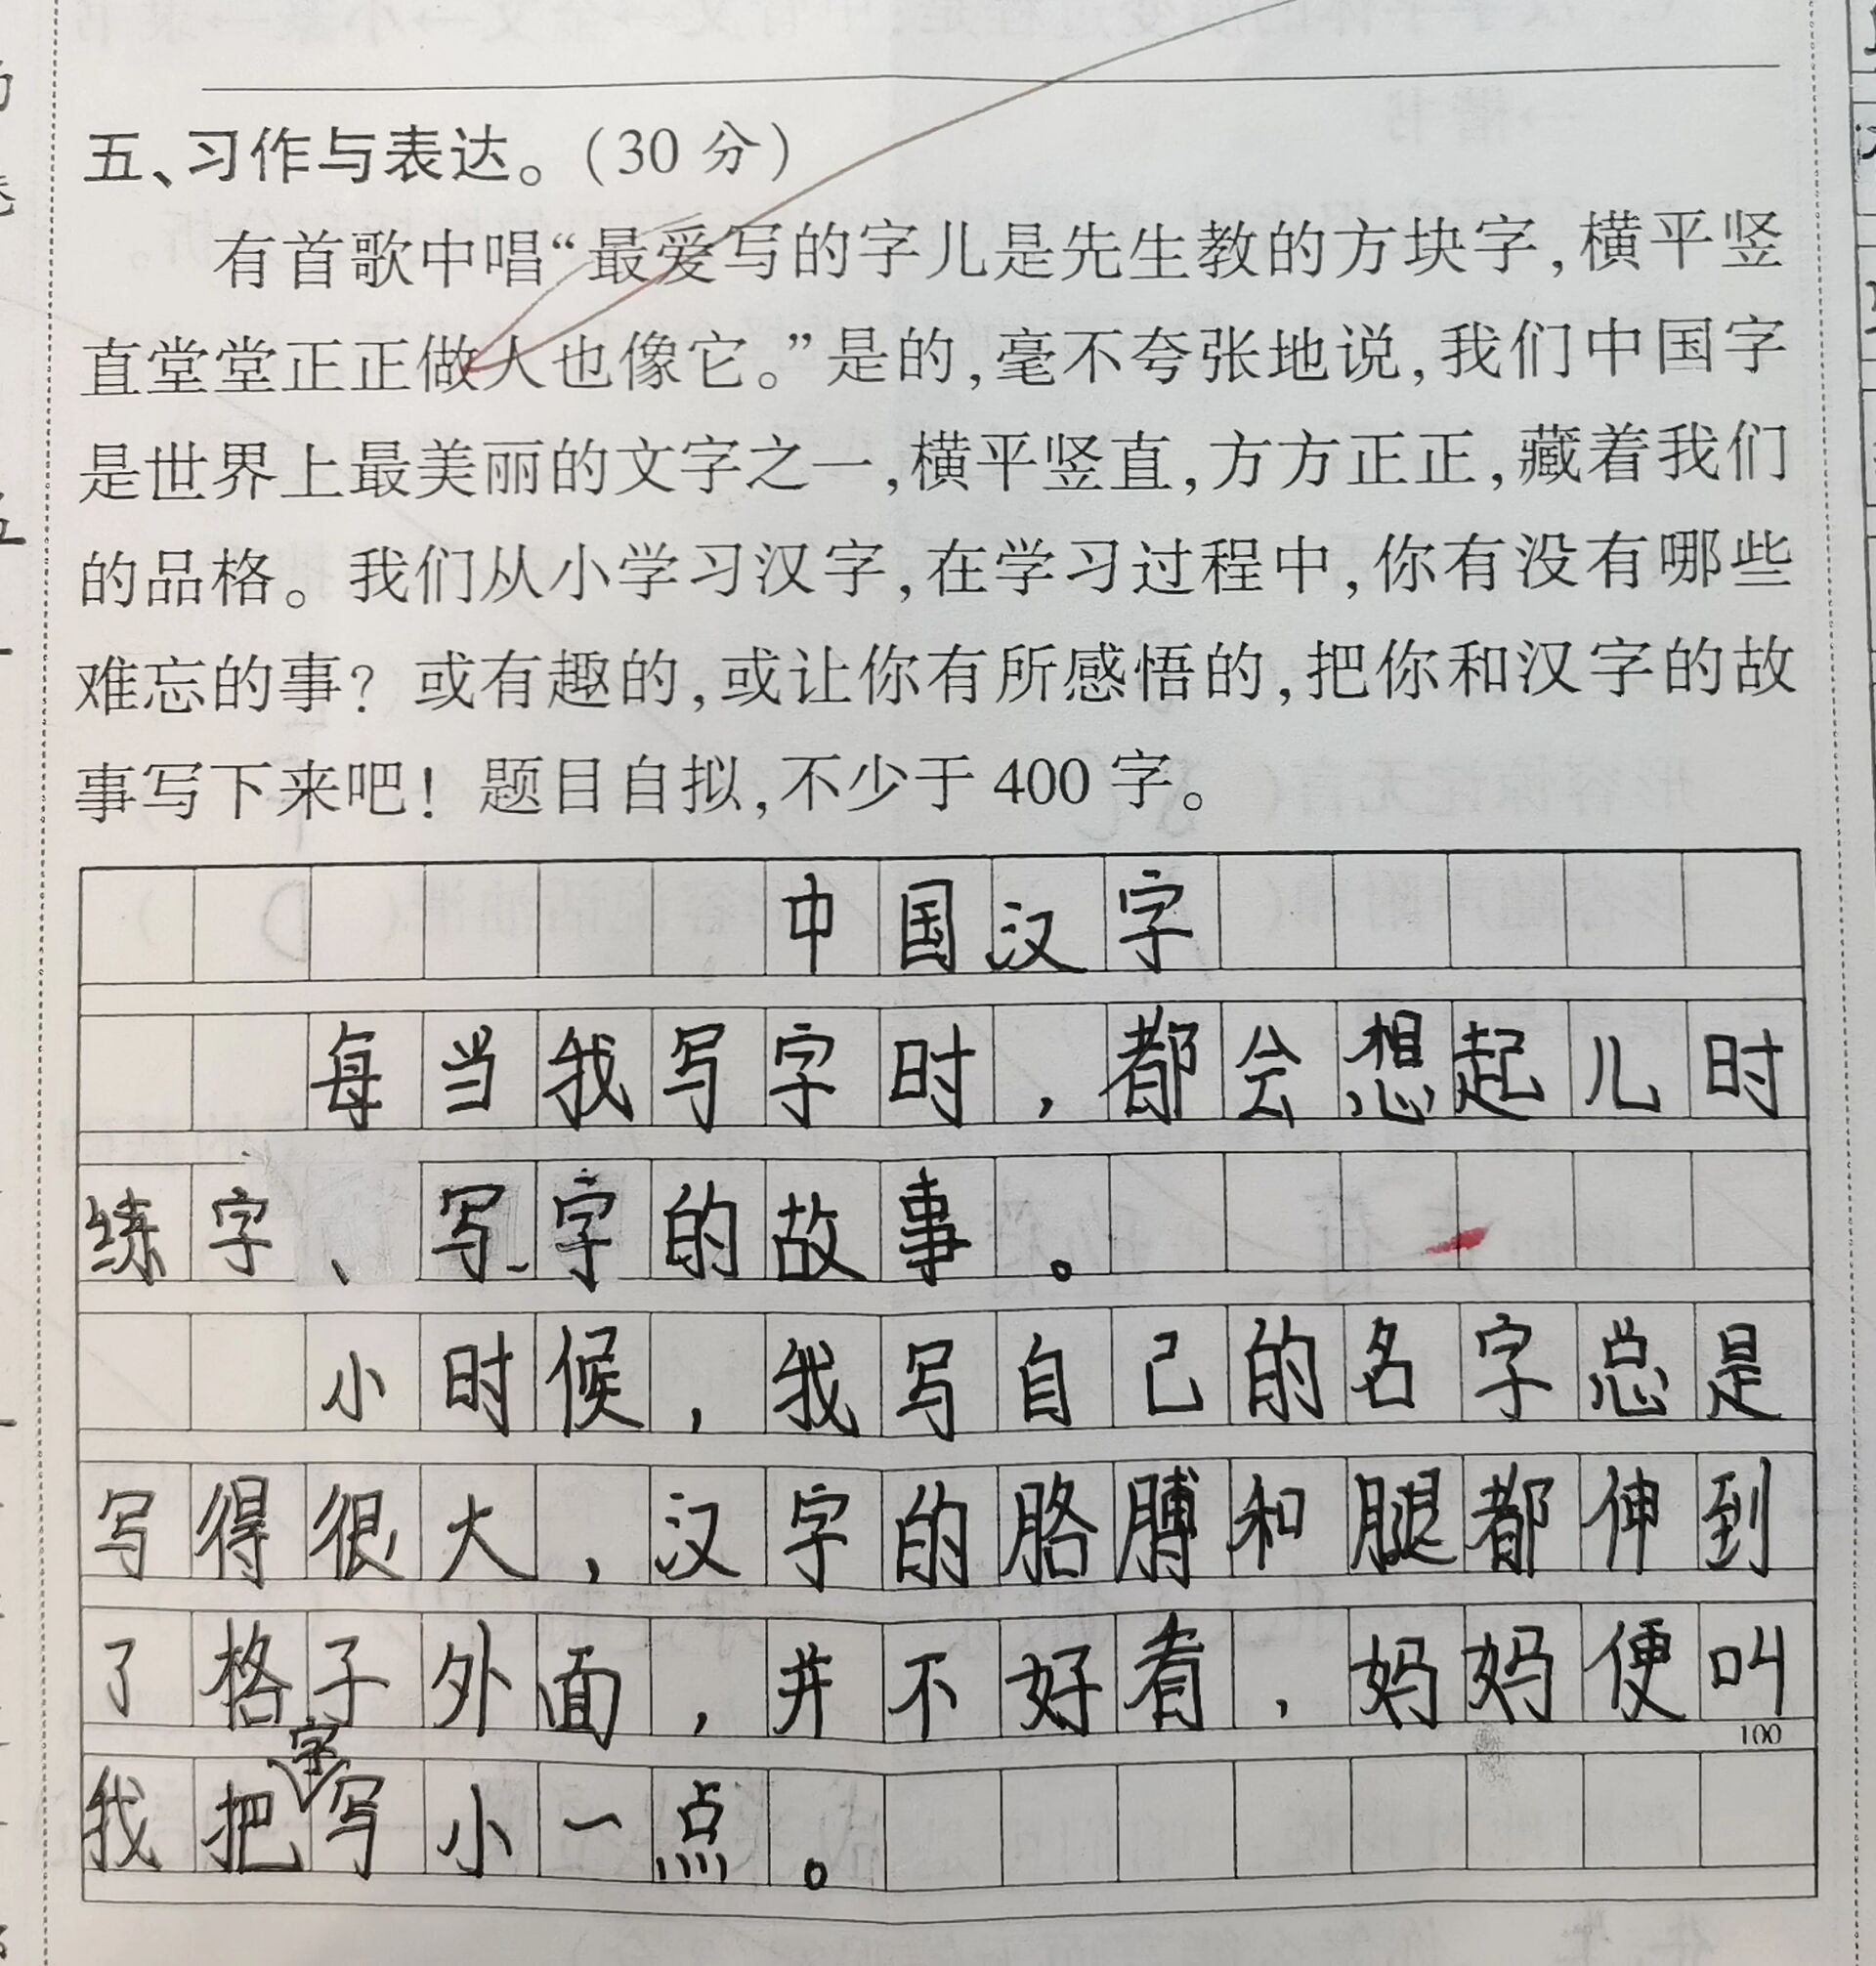 五、习作与表达。(30 分)
有首歌中唱“最爱写的字儿是先生教的方块字,横平竖
直堂堂正正做人也像它。”是的,毫不夸张地说,我们中国字
是世界上最美丽的文字之一,横平竖直,方方正正,藏着我们
的品格。我们从小学习汉字,在学习过程中,你有没有哪些
难忘的事? 或有趣的,或让你有所感悟的,把你和汉字的故
事写下来吧! 题目自拟,不少于 400 字。
中国汉字
每当我写字时,都会想起儿时
练字、写字的故事。
小时候,我写自己的名字总是
写得很大,汉字的胳膊和腿都伸到
了格子外面,并不好看,妈妈便叫
100
我把字写小一点。